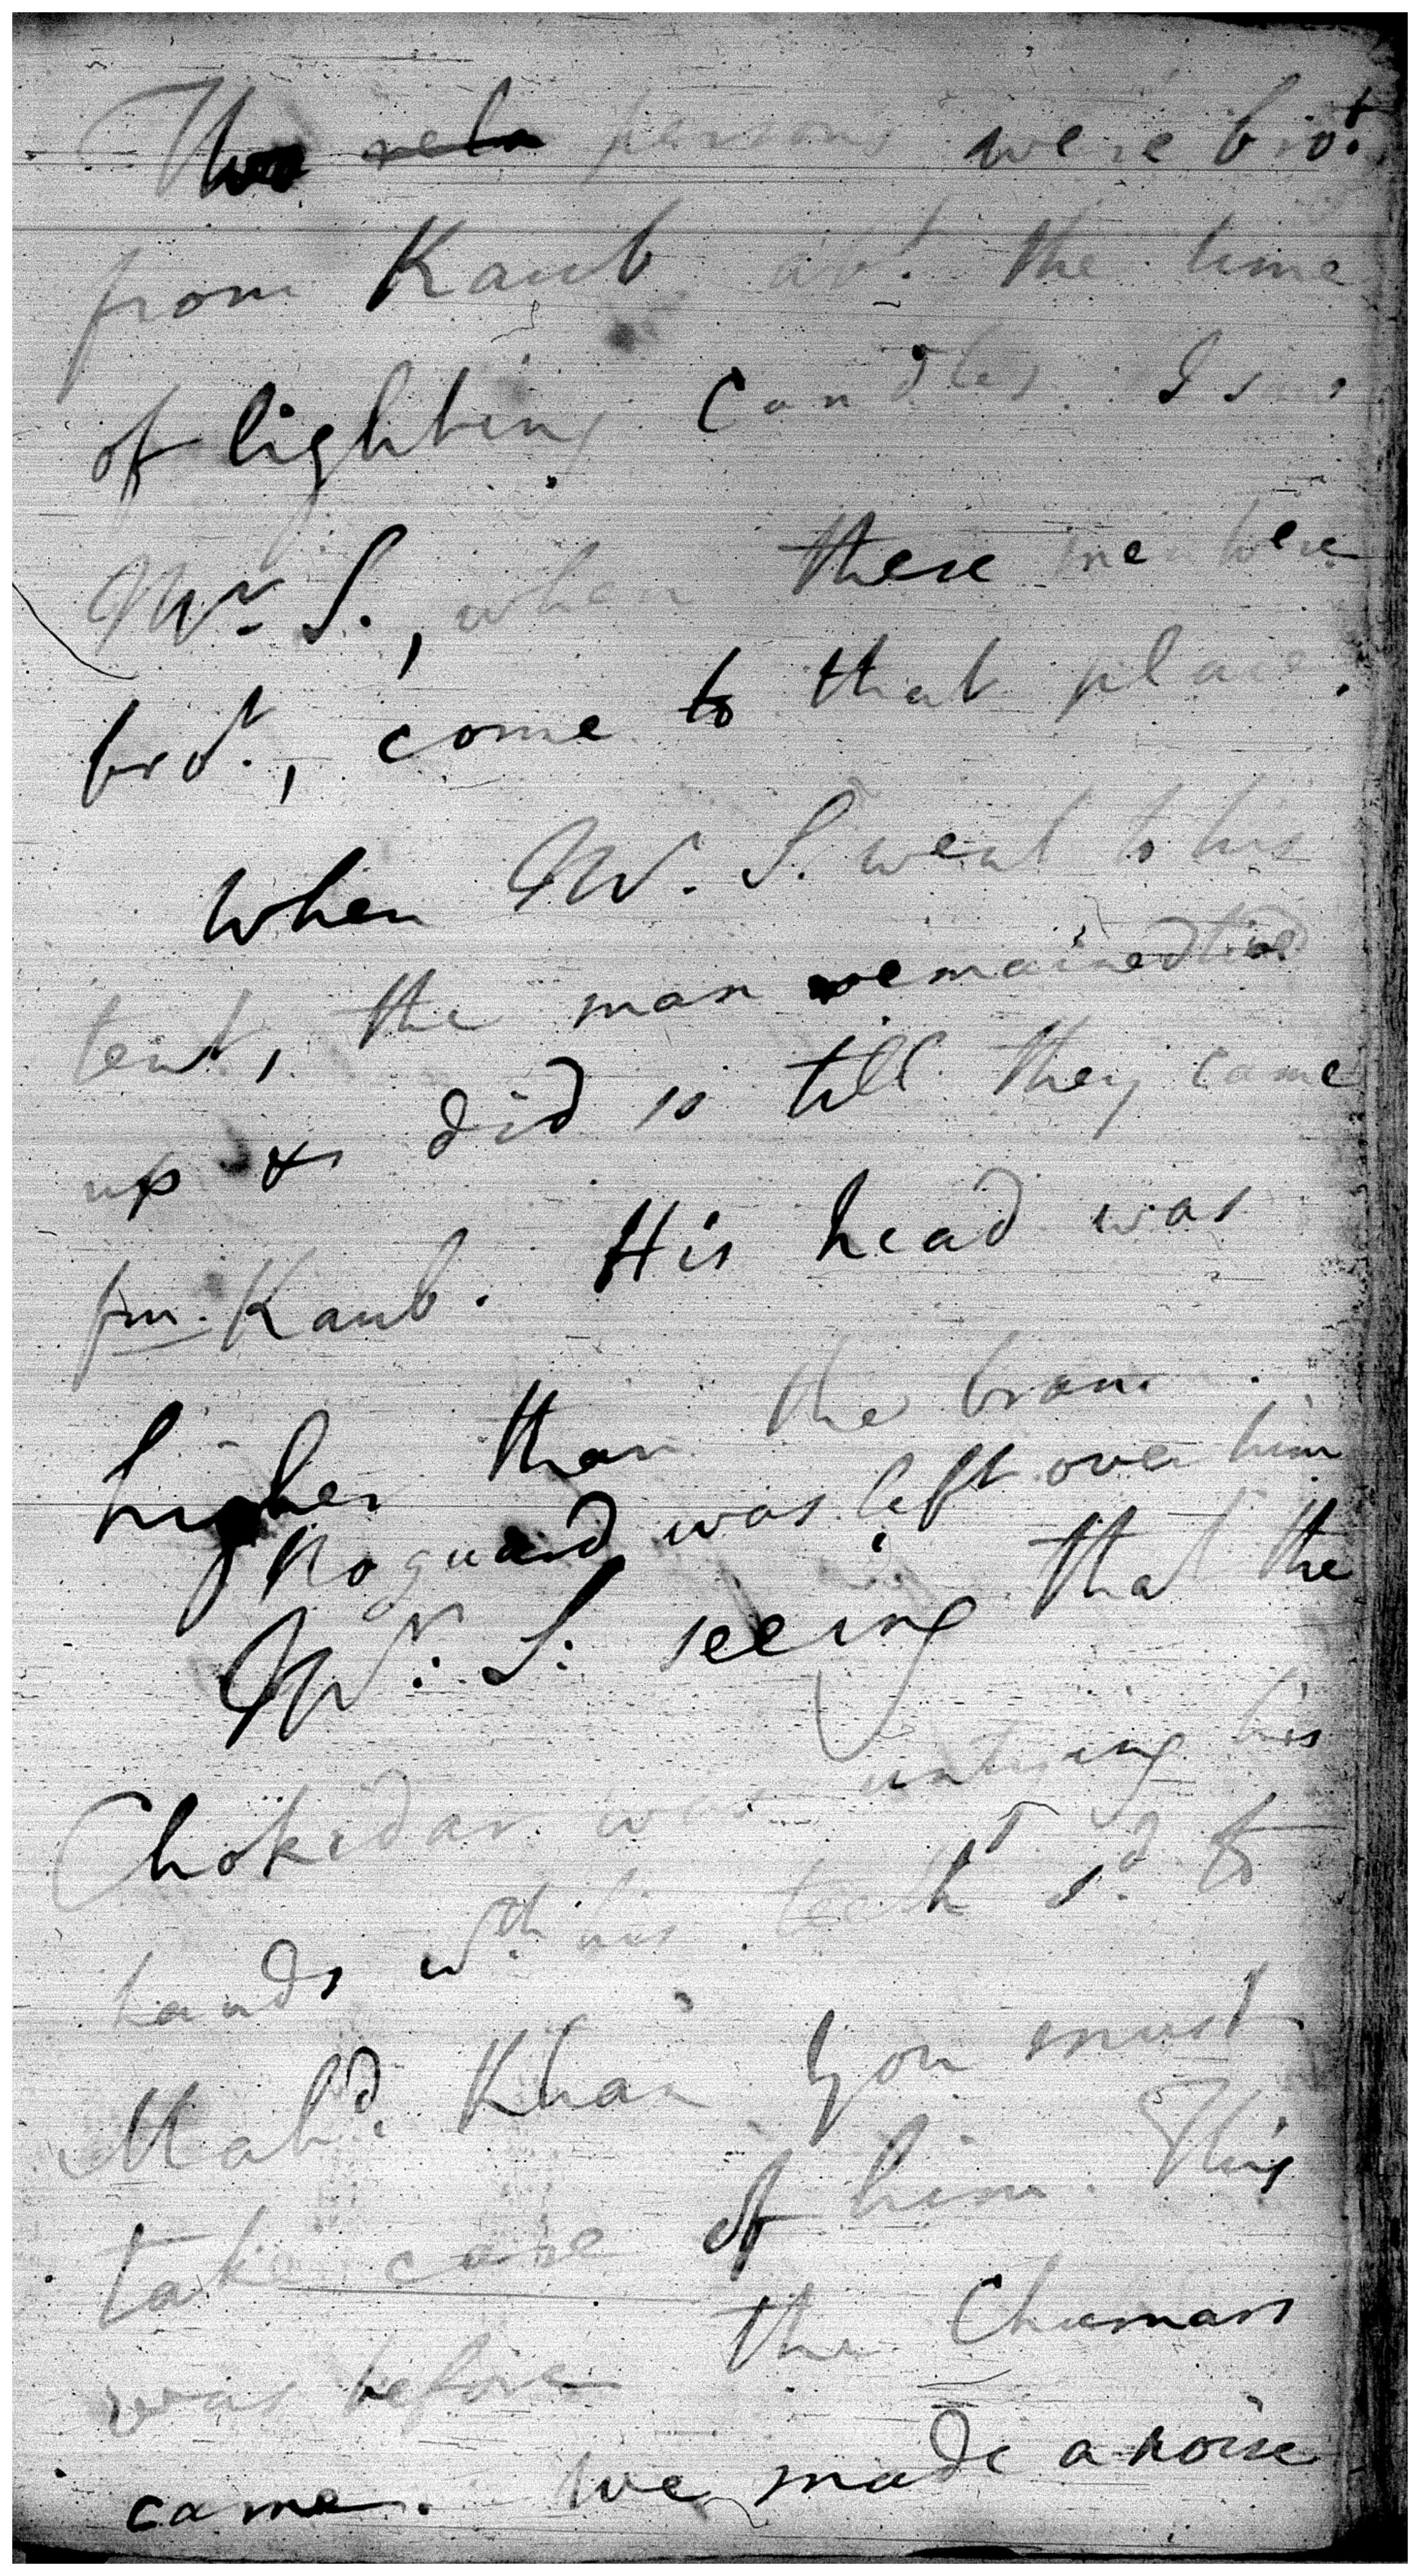 Two persons were bro.t
from Kaub ab.t the time
of lighting Candles. I saw
Mr S., when these men were
bro.t, come to that place.
When Mr. S. went to his
tent, the man remained tied
up & did so till they came
fm. Kaub. His head was
higher than the
No guard was left over him
Mr. S. seeing that the
Chokidar was untying his
hands wth his teeth sd. to
Mahd. Khan You must
take care of him. This
was before the Chumars
came. We made a noise